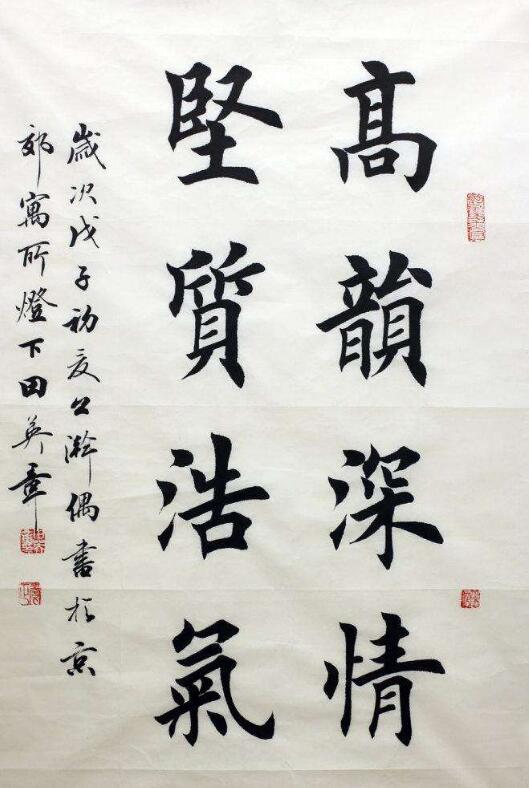 髙韻深情
堅質浩氣
歲次戊子初夏澣偶書於京
郊寓所燈下田英章